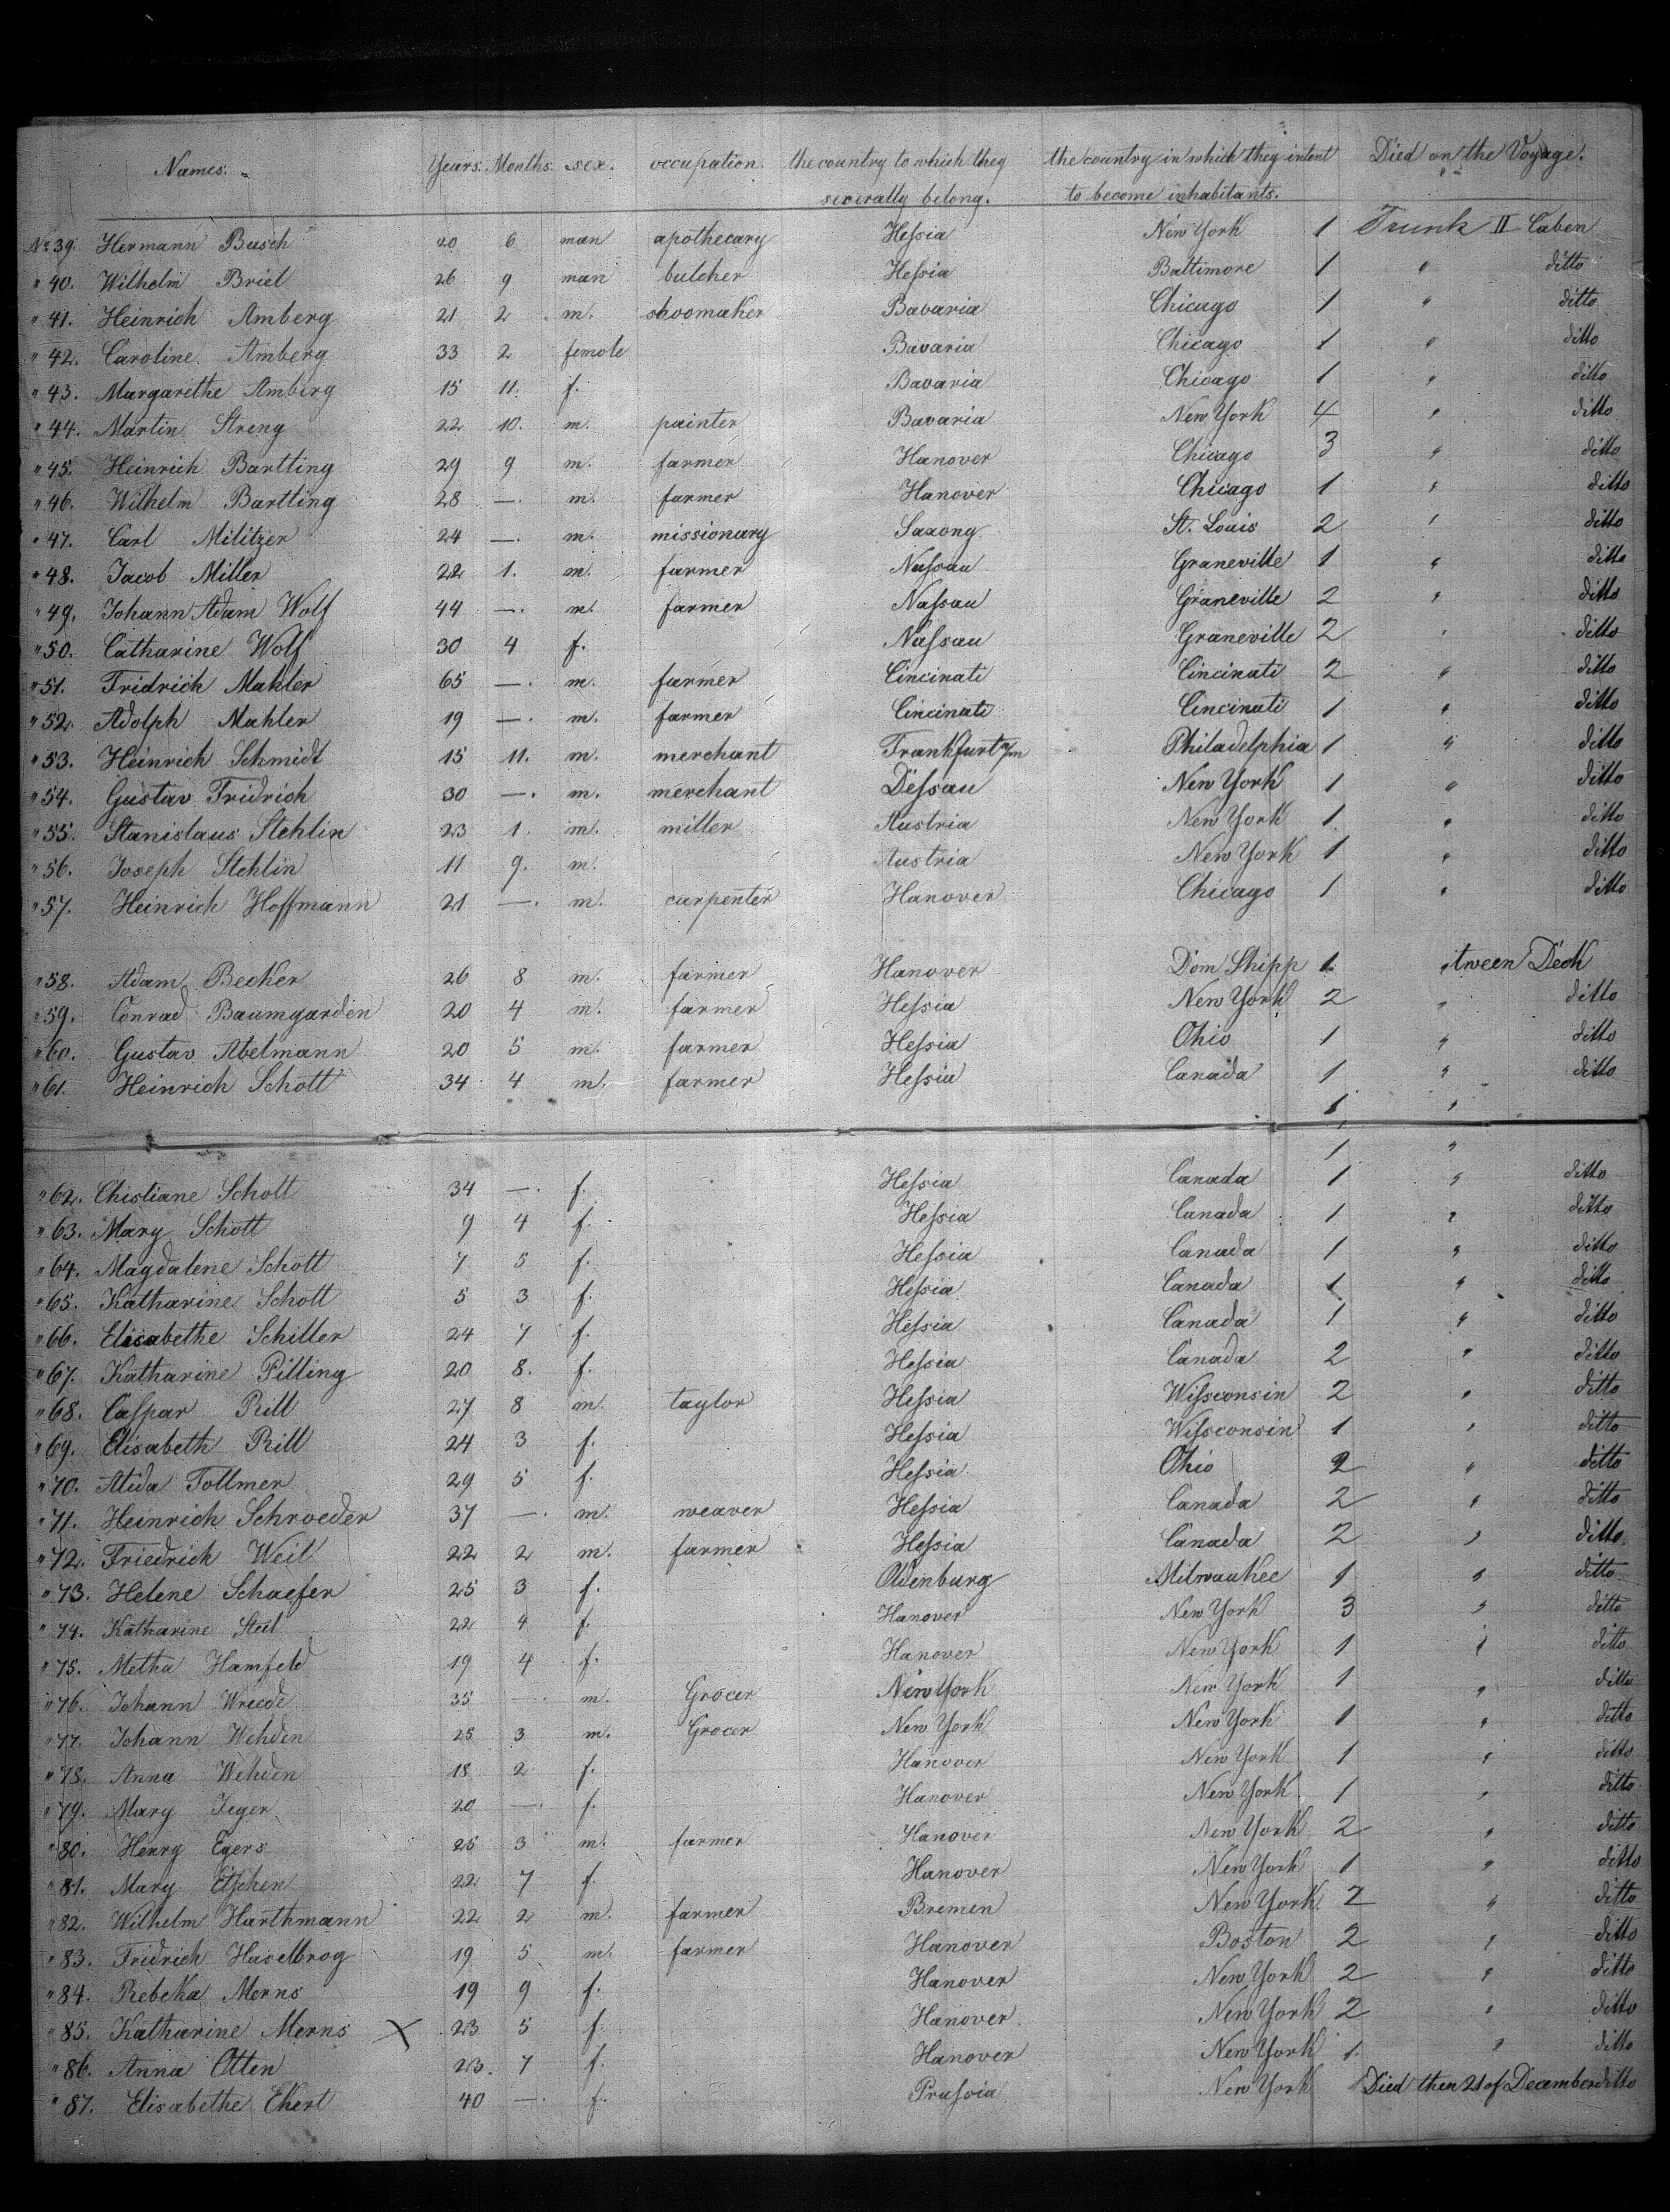 Names. Years. Months. sex. occupation. the country to which they the country in which they intent Died on the Voyage.
severally belong. to become inhabitants.
No 39. Hermann Busch 20 6 man apothecary Heſsia New York 1 Trunk II Caben
" 40. Wilhelm Briel 26 9 man butcher Heſsia Baltimore 1 " ditto
" 41. Heinrich Amberg 21 2 m. shoomaker Bavaria Chicago 1 " ditto
" 42. Caroline Amberg 33 2 female Bavaria Chicago 1 " ditto
" 43. Margarethe Amberg 15 11. f. Bavaria Chicago 1 " ditto
" 44. Martin Streng 22 10. m. painter Bavaria New York 4 " ditto
" 45. Heinrich Bartling 29 9 m. farmer Hanover Chicago 3 " ditto
" 46. Wilhelm Bartling 28 —. m. farmer Hanover Chicago 1 " ditto
" 47. Carl Militzer 24 —. m. missionary Saxony St. Louis 2 " ditto
" 48. Jacob Miller 22 1. m. farmer Naſsau Graneville 1 " ditto
" 49. Johann Adam Wolf 44 —. m. farmer Naſsau Graneville 2 " ditto
" 50. Catharine Wolf 30 4 f. Naſsau Graneville 2 " ditto
" 51. Fridrich Mahler 65 —. m. farmer Cincinati Cincinati 2 " ditto
" 52. Adolph Mahler 19 —. m. farmer Cincinati Cincinati 1 " ditto
" 53. Heinrich Schmidt 15 11. m. merchant Frankfurt a/m Philadelphia 1 " ditto
" 54. Gustav Fridrich 30 —. m. merchant Deſsau New York 1 " ditto
" 55. Stanislaus Stehlin 23 1. m. miller Austria New York 1 " ditto
" 56. Joseph Stehlin 11 9. m. Austria New York 1 " ditto
" 57. Heinrich Hoffmann 21 —. m. carpenter Hanover Chicago 1 " ditto
" 58. Adam Becker 26 8 m. farmer Hanover Dom Shipp 1 " tween Deck
" 59. Conrad Baumgarden 20 4 m. farmer Heſsia New York 2 " ditto
" 60. Gustav Abelmann 20 5 m. farmer Heſsia Ohio 1 " ditto
" 61. Heinrich Schott 34 4 m. farmer Heſsia Canada 1 " ditto
1 "
1 "
" 62. Chistiane Schott 34 —. f. Heſsia Canada 1 " ditto
" 63. Mary Schott 9 4 f. Heſsia Canada 1 " ditto
" 64. Magdalene Schott 7 5 f. Heſsia Canada 1 " ditto
" 65. Katharine Schott 5 3 f. Heſsia Canada 1 " ditto
" 66. Elisabethe Schiller 24 7 f. Heſsia Canada 1 " ditto
" 67. Katharine Pilling 20 8. f. Heſsia Canada 2 " ditto
" 68. Caſpar Rill 27 8 m. taylor Heſsia Wiſsconsin 2 " ditto
" 69. Elisabeth Rill 24 3 f. Heſsia Wiſsconsin 1 " ditto
" 70. Alida Tollmer 29 5 f. Heſsia Ohio 2 " ditto
" 71. Heinrich Schroeder 37 —. m. weaver Heſsia Canada 2 " ditto
" 72. Friedrich Weil 22 2 m. farmer Heſsia Canada 2 " ditto
" 73. Helene Schaefer 25 3 f. Oldenburg Milwaukee 1 " ditto
" 74. Katharine Steil 22 4 f. Hanover New York 3 " ditto
" 75. Metha Hamfeld 19 4 f. Hanover New York 1 " ditto
" 76. Johann Wrede 35 —. m. Grocer New York New York 1 " ditto
" 77. Johann Wehden 25 3 m. Grocer New York New York 1 " ditto
" 78. Anna Wehden 18 2 f. Hanover New York 1 " ditto
" 79. Mary Jeger 20 —. f. Hanover New York 1 " ditto
" 80. Henry Egers 25 3 m. farmer Hanover New York 2 " ditto
" 81. Mary 22 7 f. Hanover New York 1 " ditto
" 82. Wilhelm Harthmann 22 2 m. farmer Bremen New York 2 " ditto
" 83. Fridrich Haselbrog 19 5 m. farmer Hanover Boston 2 " ditto
" 84. Rebeka Merns 19 9 f. Hanover New York 2 " ditto
" 85. Katharine Merns X 23 5 f. Hanover New York 2 " ditto
" 86. Anna Otten 23. 7 f. Hanover New York 1. " ditto
" 87. Elisabethe Ekert 40 —. f. Pruſsia New York Died then 21 of December ditto